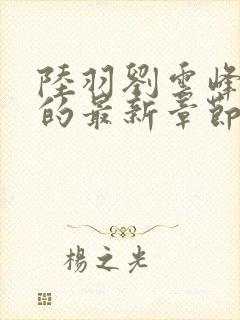 陸羽劉雲峰
的最新章節
楊之光